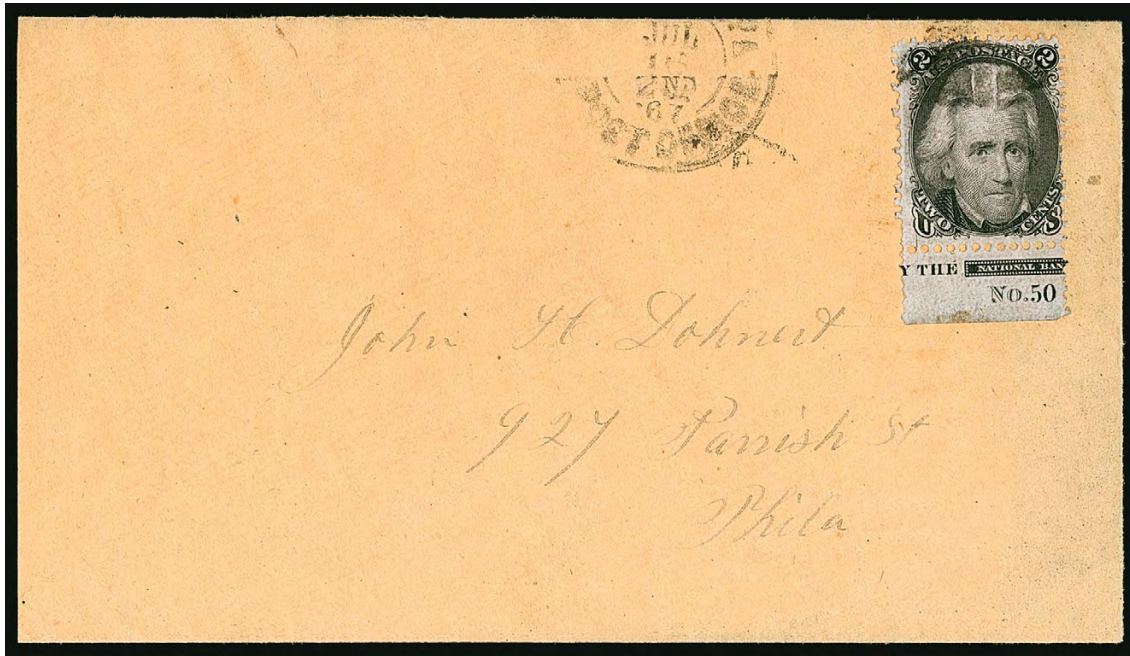 JUL
2ND
'67
POST OFFICE
2 U.S. POSTAGE 2
TWO CENTS
U S
Y THE NATIONAL BAN
No. 50
John H. Dohnert
927 Parrish St
Phila